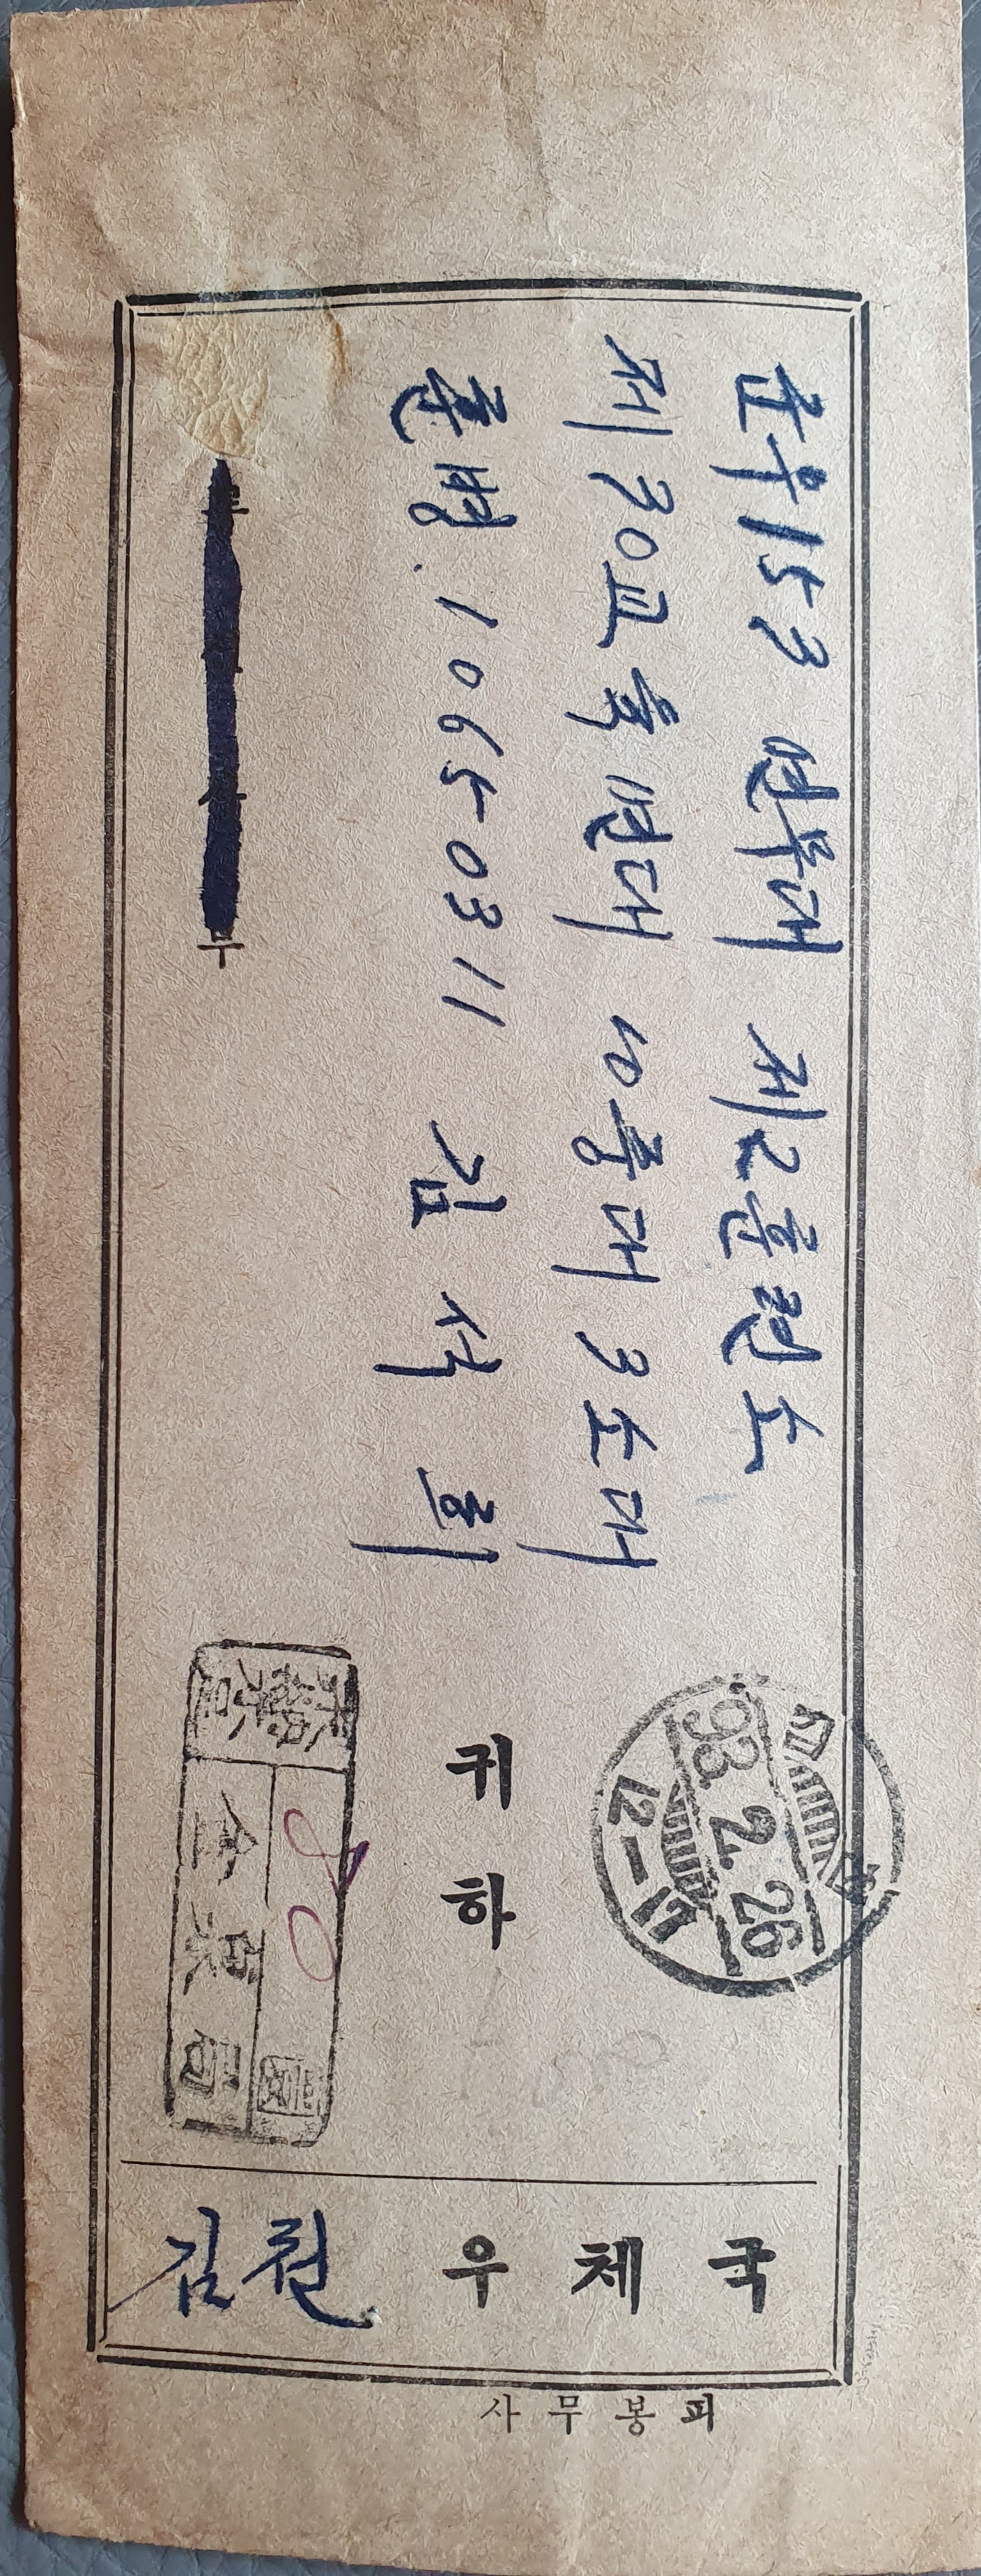 군우153 연무대 제2훈련소
제30교육연대 10중대 3소대
훈병. 10650311 김석희
귀하
2. 26
12-17
金泉局
부
김천 우체국
사무봉피